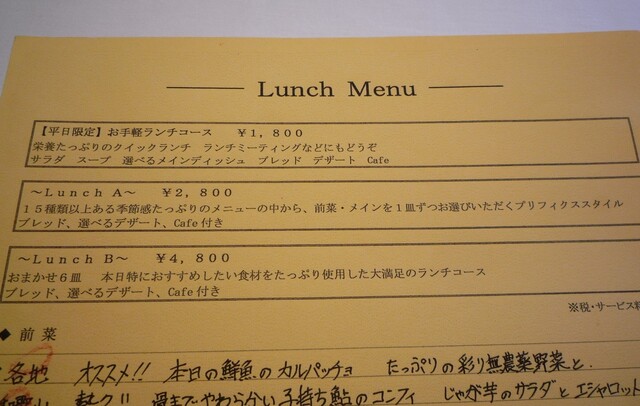 Lunch Menu
【平日限定】お手軽ランチコース ￥1,800
栄養たっぷりのクイックランチ ランチミーティングなどにもどうぞ
サラダ スープ 選べるメインディッシュ ブレッド デザート Cafe
～Lunch A～ ￥2,800
15種類以上ある季節感たっぷりのメニューの中から、前菜・メインを1皿ずつお選びいただくプリフィクススタイル
ブレッド、選べるデザート、Cafe付き
～Lunch B～ ￥4,800
おまかせ6皿 本日特におすすめしたい食材をたっぷり使用した大満足のランチコース
ブレッド、選べるデザート、Cafe付き
※税・サービス料
◆ 前菜
各地 オススメ!! 本日の鮮魚のカルパッチョ たっぷりの彩り無農薬野菜と
熱々!! 骨までやわらかい子持ち鮎のコンフィ じゃが芋のサラダとエシャロット